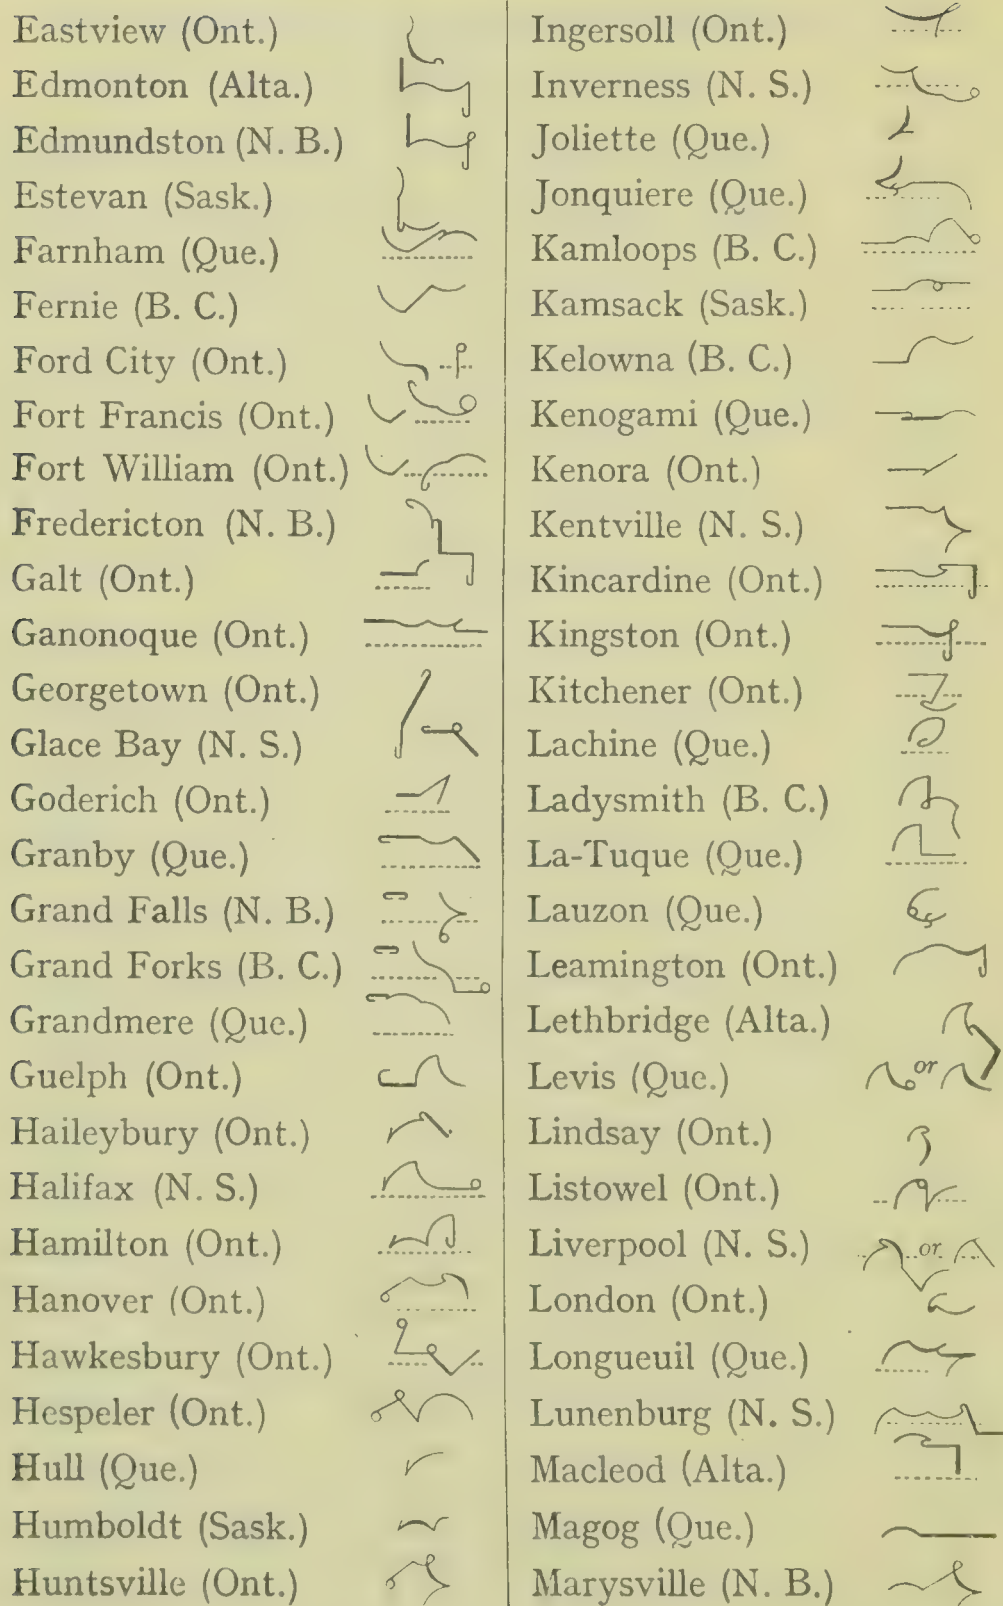 Eastview (Ont.)
Edmonton (Alta.)
Edmundston (N. B.)
Estevan (Sask.)
Farnham (Que.)
Fernie (B. C.)
Ford City (Ont.)
Fort Francis (Ont.)
Fort William (Ont.)
Fredericton (N. B.)
Galt (Ont.)
Ganonoque (Ont.)
Georgetown (Ont.)
Glace Bay (N. S.)
Goderich (Ont.)
Granby (Que.)
Grand Falls (N. B.)
Grand Forks (B. C.)
Grandmere (Que.)
Guelph (Ont.)
Haileybury (Ont.)
Halifax (N. S.)
Hamilton (Ont.)
Hanover (Ont.)
Hawkesbury (Ont.)
Hespeler (Ont.)
Hull (Que.)
Humboldt (Sask.)
Huntsville (Ont.)
Ingersoll (Ont.)
Inverness (N. S.)
Joliette (Que.)
Jonquiere (Que.)
Kamloops (B. C.)
Kamsack (Sask.)
Kelowna (B. C.)
Kenogami (Que.)
Kenora (Ont.)
Kentville (N. S.)
Kincardine (Ont.)
Kingston (Ont.)
Kitchener (Ont.)
Lachine (Que.)
Ladysmith (B. C.)
La-Tuque (Que.)
Lauzon (Que.)
Leamington (Ont.)
Lethbridge (Alta.)
Levis (Que.) or
Lindsay (Ont.)
Listowel (Ont.)
Liverpool (N. S.) or
London (Ont.)
Longueuil (Que.)
Lunenburg (N. S.)
Macleod (Alta.)
Magog (Que.)
Marysville (N. B.)